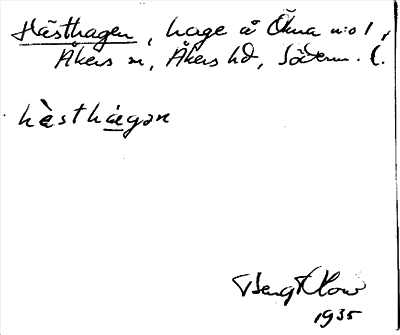 Hästhagen, hage å Ökna n:o 1,
Åkers sn, Åkers hd, Söderm. l.
hὰsthàgən
Bengt
1935